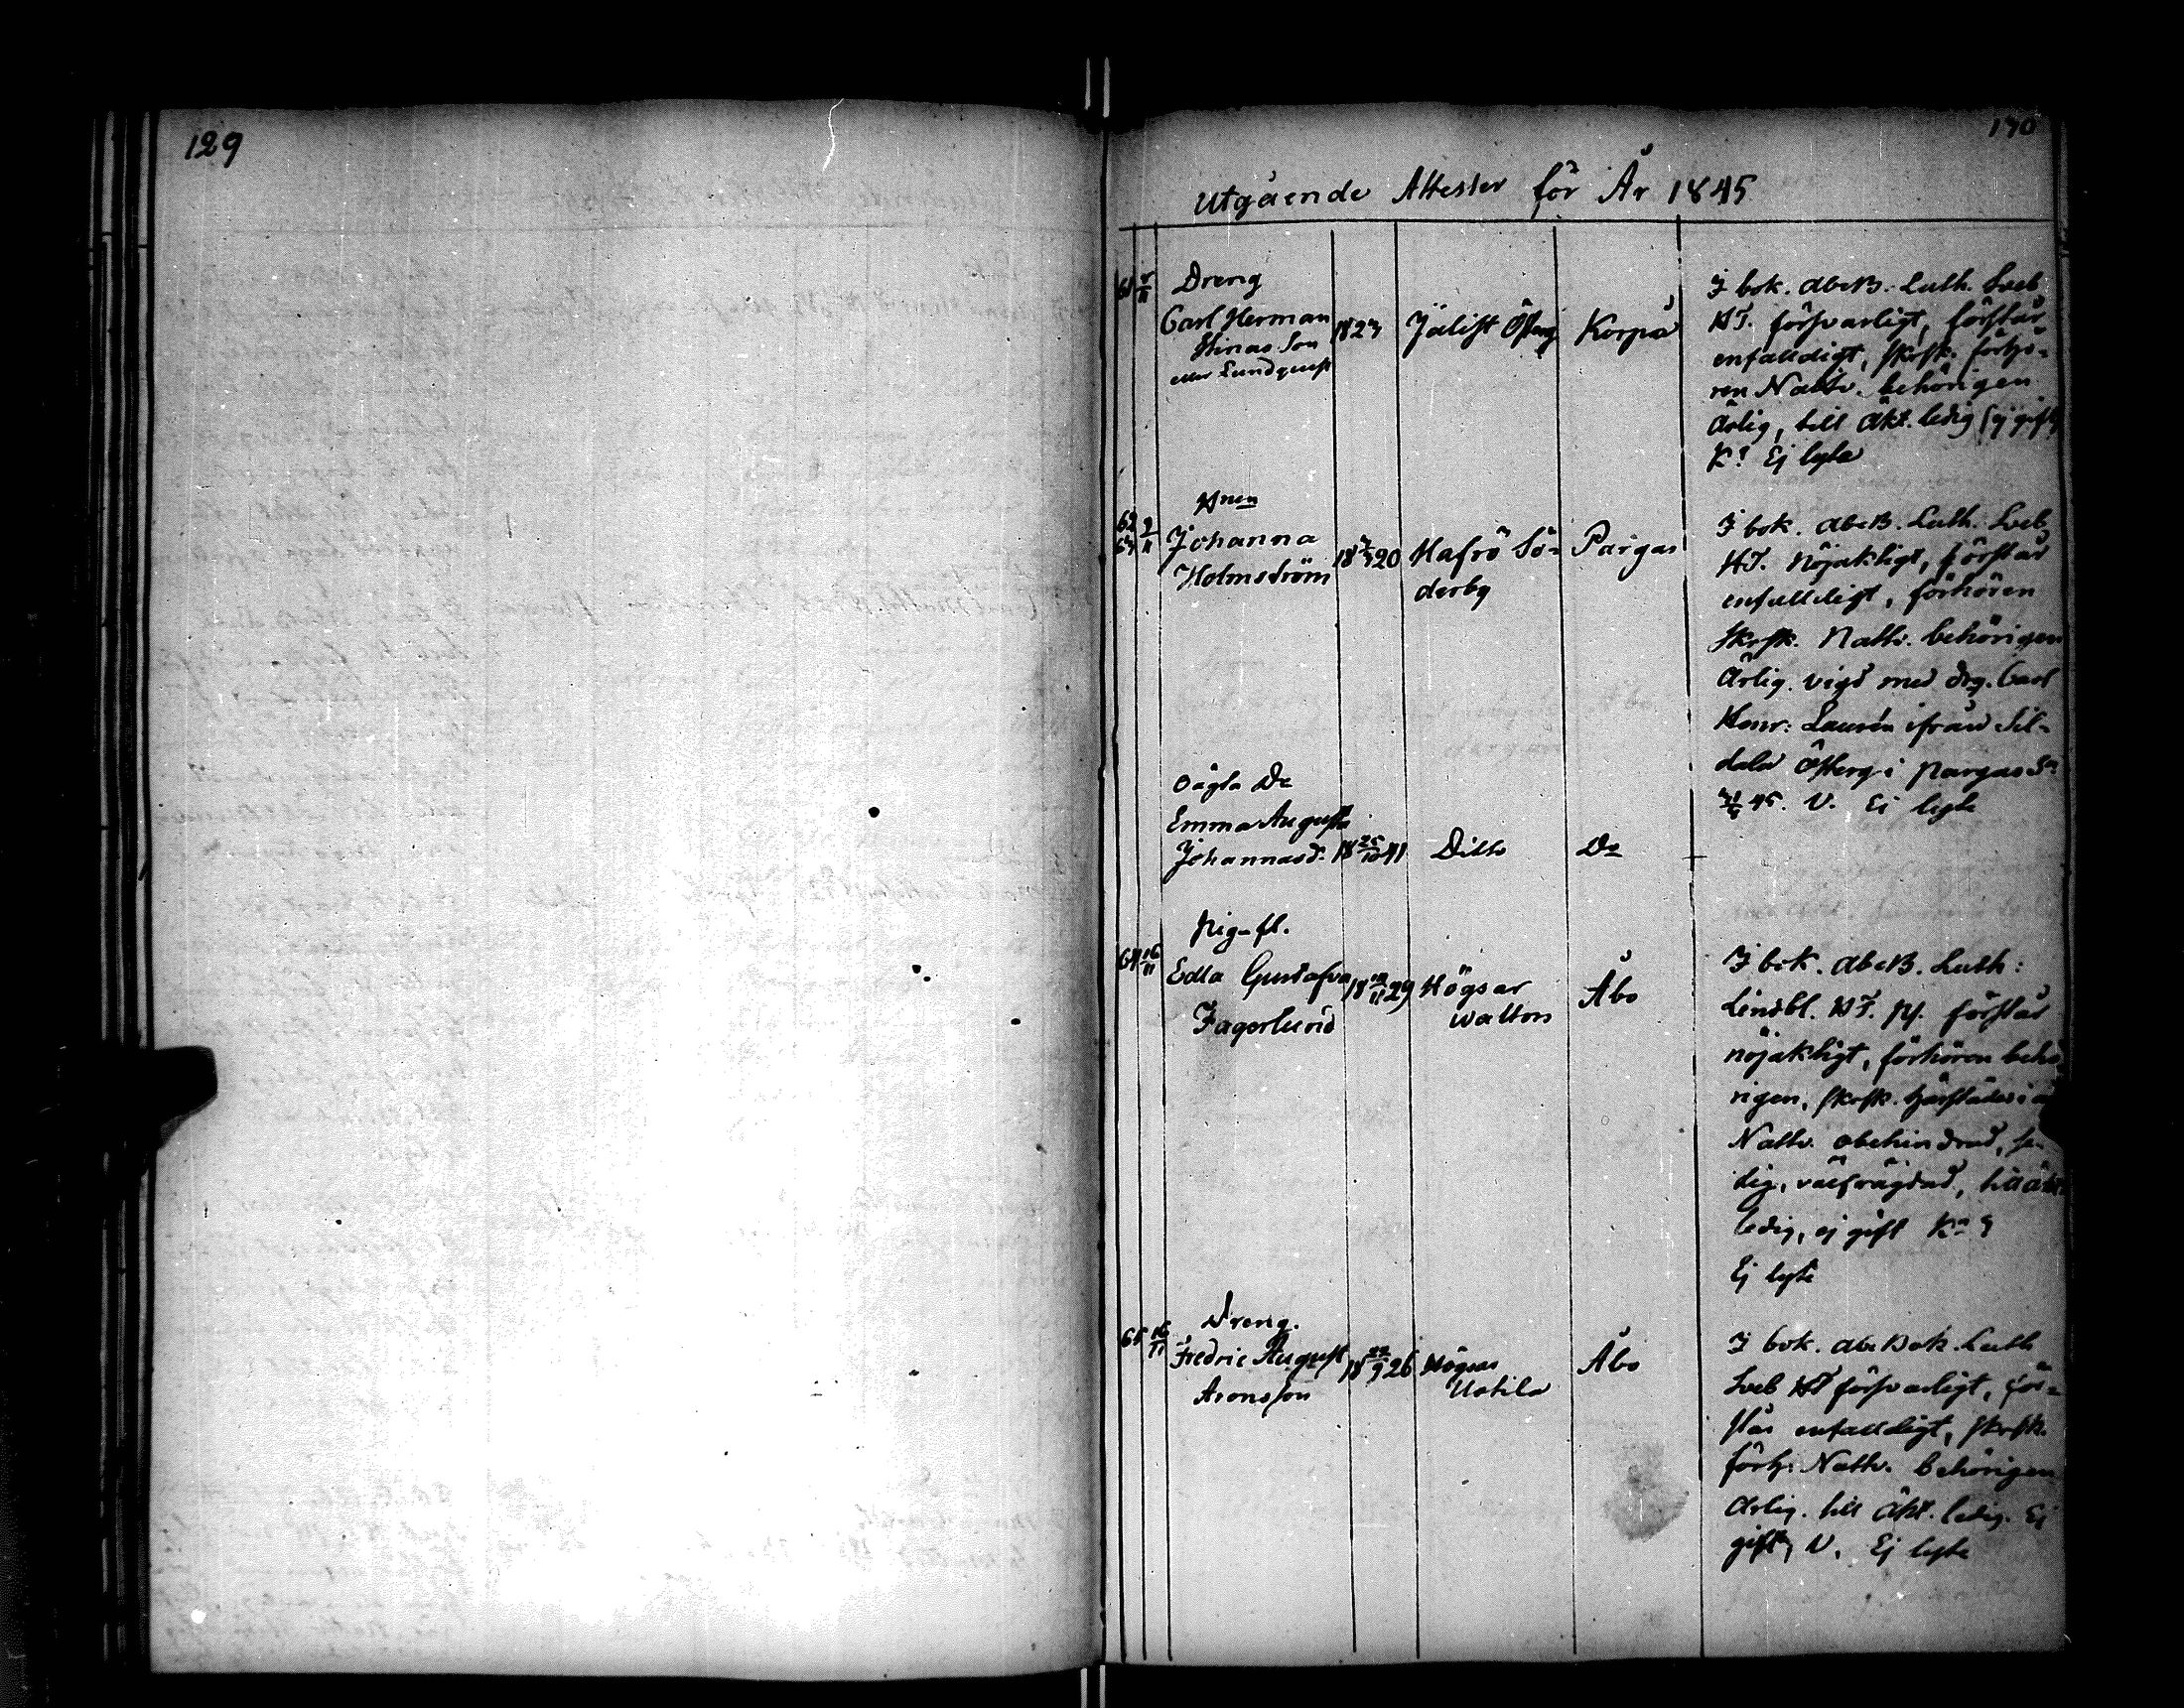 129
130
Utgående Attester för År 1845
61 5/11 Dreng
Carl Herman
Stinas Son
eller Lundquist
1823
Jälist Österg
Korpå
I bok. AbcB. Luth. Sveb
HT. försvarligt, förstår
enfalldigt, skrsk. förhö-
ren Nattv. behörigen
Ärlig, till äkt. ledig (ej gift)
Ej lyte
62
63 9/11
Hnen
Johanna
Holmström
20
Hafrö Sö-
derby
Pargas
I bok. AbcB. Luth. Sveb
HT. Nöjakligt, förstår
enfalldigt, förhören
Skrsk. Nattv. behörigen
Ärlig. vigd med drg. Carl
Henr: Laurén ifrån Sil-
dala Österg. i Pargas Sn
45. V. Ej lyte
oägta Dr
Emma Augusta
Johannasd:
18 25/10 41
Ditto
Do
Pig-fl.
64 16/11
Edla Gustafva
Fagerlund
29
Högsar
Waltons
Åbo
I bok. AbcB. Luth:
Lindbl. HT. förstår
nöjakligt, förhören behö
rigen, skrsk. härstädes i år
Nattv. obehindrad, se-
dig, välfrägdad, till äkt.
ledig, ej gift
Ej lyte
Dreng.
65 16/11
Fredric August
Aronsson
18 22/9 26
Högsar
Uotila
Åbo
I bok. Abc Bok. Luth
Sveb HT försvarligt, för-
står enfalldigt, skrsk.
förh: Nattv. behörigen
Ärlig. till äkt. ledig. Ej
gift, V. Ej lyte